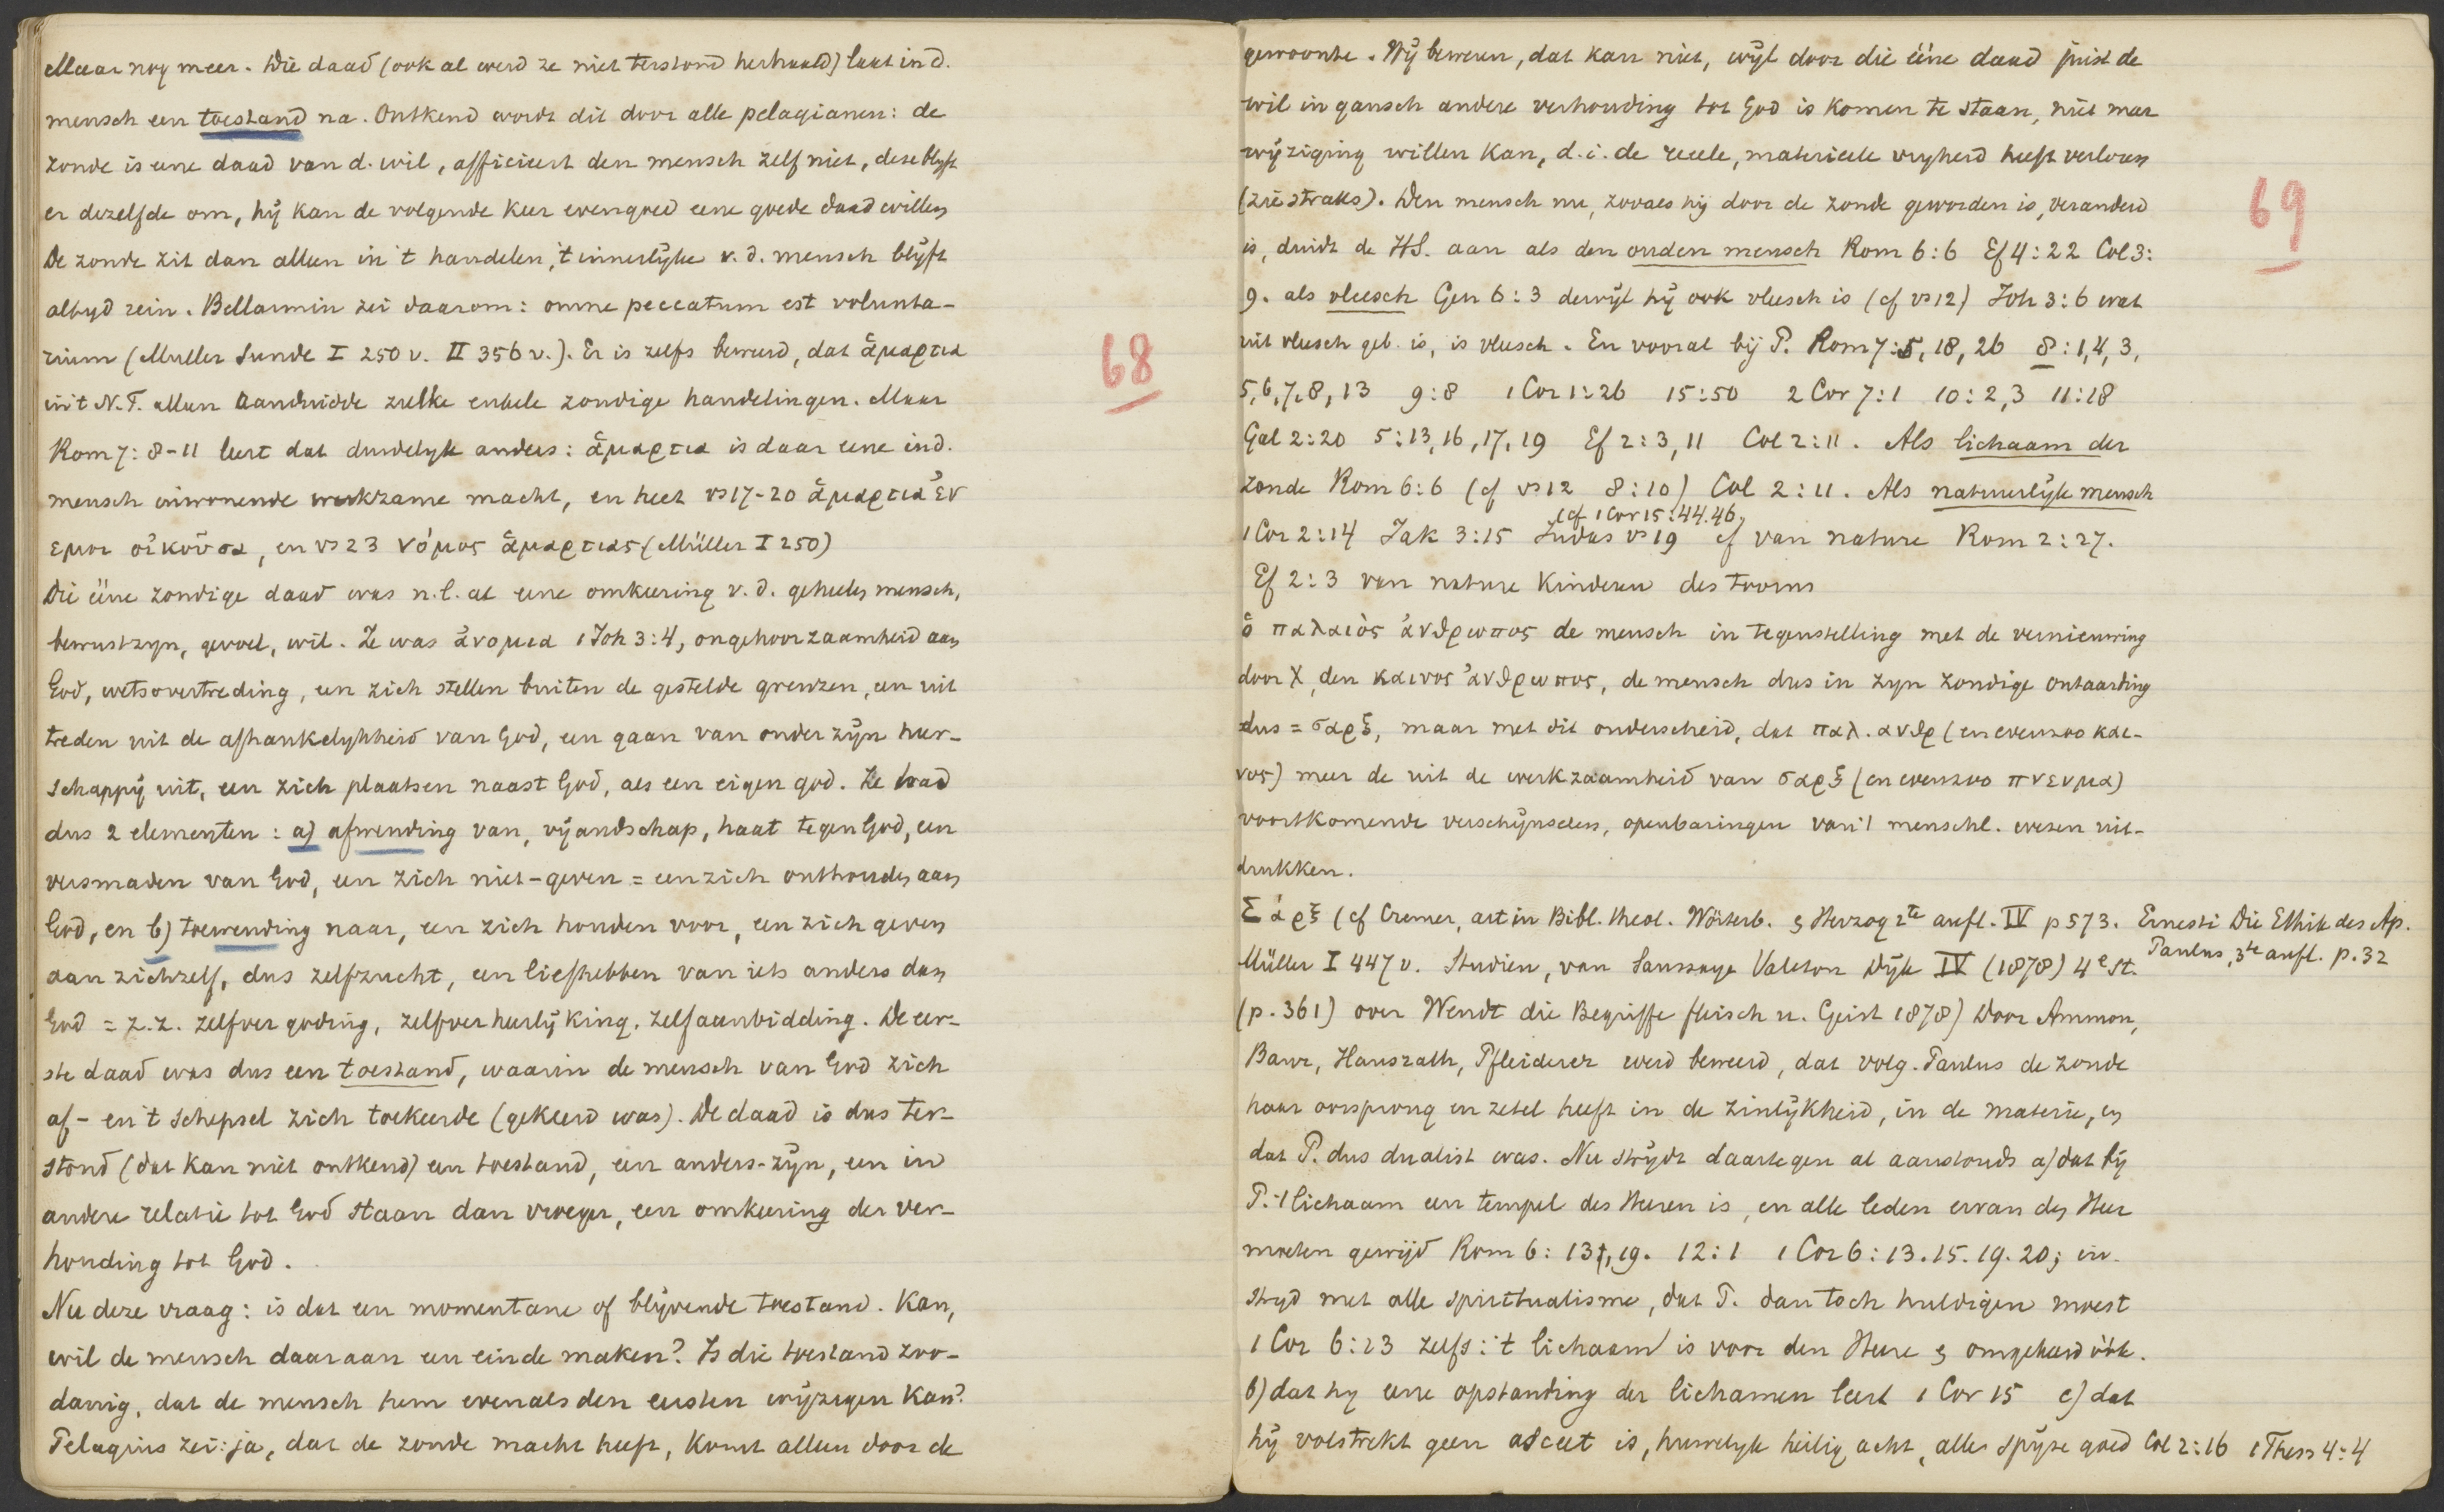 Maar nog meer. Die daad (ook al werd ze niet terstond herhaald) laat in d.
mensch een toestand na. Ontkend wordt dit door alle pelagianen: de
zonde is eene daad van d. wil, afficieert den mensch zelf niet, deze blijft
er dezelfde om, hij kan de volgende keer evengoed eene goede daad willen
De zonde zit dan alleen in 't handelen, 't innerlijke v. d. mensch blijft
altijd rein. Bellarmin zei daarom: omne peccatum est volunta-
rium (Muller Sunde I 250 v. II 356 v.). Er is zelfs beweerd, dat ἁμαρτια
in 't N.T. alleen aanduidde zulke enkele zondige handelingen. Maar
Rom 7: 8-11 leert dat duidelijk anders: ἁμαρτια is daar eene in d.
mensch inwonende werkzame macht, en heet vs 17-20 ἁμαρτια ἐν
εμοι οἰκοῦσα, en vs 23 νόμος ἁμαρτιας (Müller I 250)
Die ééne zondige daad was n.l. al eene omkeering v. d. geheelen mensch,
bewustzijn, gevoel, wil. Ze was ἀνομια 1 Joh 3:4, ongehoorzaamheid aan
God, wetsovertreding, een zich stellen buiten de gestelde grenzen, een uit
treden uit de afhankelijkheid van God, een gaan van onder zijn heer-
schappij uit, een zich plaatsen naast God, als een eigen god. Ze had
dus 2 elementen: a) afwending van, vijandschap, haat tegen God, een
versmaden van God, een zich niet-geven = een zich onthouden aan
God, en b) toewending naar, een zich houden voor, een zich geven
aan zichzelf, dus zelfzucht, een liefhebben van iets anders dan
God = z.z. zelfvergoding, zelfverheerlijking, zelfaanbidding. De eer-
ste daad was dus een toestand, waarin de mensch van God zich
af- en 't schepsel zich toekeerde (gekeerd was). De daad is dus ter-
stond (dat kan niet ontkend) een toestand, een anders-zijn, een in
andere relatie tot God staan dan vroeger, een omkeering der ver-
houding tot God.
Nu deze vraag: is dat een momentane of blijvende toestand. Kan,
wil de mensch daaraan een einde maken? Is die toestand zoo-
danig, dat de mensch hem evenals den eersten wijzigen kan?
Pelagius zei: ja, dat de zonde macht heeft, komt alleen door de
68
gewoonte. Wij beweren, dat kan niet, wijl door die ééne daad juist de
wil in gansch andere verhouding tot God is komen te staan, niet meer
wijziging willen kan, d.i. de reeele, materieele vrijheid heeft verloren
(zie straks). Den mensch nu, zooals hij door de zonde geworden is, veranderd
is, duidt de HS. aan als den ouden mensch Rom 6:6 Ef 4:22 Col 3:
9. als vleesch Gen 6:3 dewijl hij ook vleesch is (cf vs 12) Joh 3:6 wat
uit vleesch geb. is, is vleesch. En vooral bij P. Rom 7:5, 18, 26 8:1,4,3,
5,6,7,8,13 9:8 1 Cor 1:26 15:50 2 Cor 7:1 10:2,3 11:18
Gal 2:20 5:13,16,17,19 Ef 2:3,11 Col 2:11. Als lichaam der
zonde Rom 6:6 (cf vs 12 8:10) Col 2:11. Als natuurlijke mensch
(cf 1 Cor 15:44.46.
1 Cor 2:14 Jak 3:15 Judas vs 19 cf van nature Rom 2:27.
Ef 2:3 van nature kinderen des toorns
ὁ παλαιὸς ἀνθρωπος de mensch in tegenstelling met de vernieuwing
door X, den καινος ἀνθρωπος, de mensch dus in zijn zondige ontaarding
dus = σαρξ, maar met dit onderscheid, dat παλ. ανθρ (en evenzoo και-
νος) meer de uit de werkzaamheid van σαρξ (en evenzoo πνευμα)
voortkomende verschijnselen, openbaringen van 't menschl. wezen uit-
drukken.
Σάρξ (cf Cremer, art in Bibl. theol. Wörterb. & Herzog 2te aufl. IV p 573. Ernesti Die Ethik des Ap.
Paulus, 3te aufl. p. 32
Müller I 447 v. Studien, van Saussaye Valeton Dijk IV (1878) 4e st.
(p. 361) over Wendt die Begriffe fleisch u. Geist 1878) Door Ammon,
Baur, Hausrath, Pfleiderer werd beweerd, dat volg. Paulus de zonde
haar oorsprong en zetel heeft in de zinlijkheid, in de materie, en
dat P. dus dualist was. Nu strijdt daartegen al aanstonds a) dat bij
P. 't lichaam een tempel des Heeren is, en alle leden ervan den Heer
moeten gewijd Rom 6: 13, 19. 12:1 1 Cor 6:13.15.19.20; in
strijd met alle spiritualisme, dat P. dan toch huldigen moest
1 Cor 6:13 zelfs: 't lichaam is voor den Heere & omgekeerd óók.
b) dat hij eene opstanding der lichamen leert 1 Cor 15 c) dat
hij volstrekt geen asceet is, huwelijk heilig acht, alle spijze goed Col 2:16 1 Thess 4:4
69